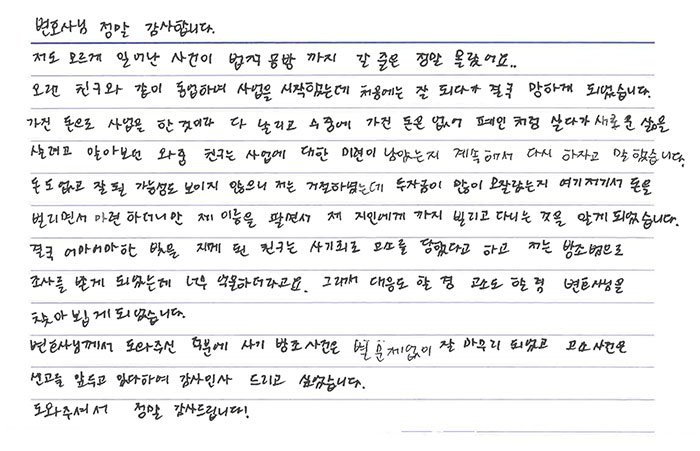 변호사님 정말 감사합니다.
저도 모르게 일어난 사건이 법적 공방 까지 갈 줄은 정말 몰랐어요..
오랜 친구와 같이 동업하여 사업을 시작했는데 처음에는 잘 되다가 결국 망하게 되었습니다.
가진 돈으로 사업을 한 것이라 다 날리고 수중에 가진 돈은 없어 폐인 처럼 살다가 새로운 삶을
살려고 알아보던 와중 친구는 사업에 대한 미련이 남았는지 계속해서 다시 하자고 말했습니다.
돈도 없고 잘 될 가능성도 보이지 않으니 저는 거절하였는데 투자금이 많이 모잘랐는지 여기저기서 돈을
빌리면서 마련 하더니만 제 이름을 팔면서 제 지인에게 까지 빌리고 다니는 것을 알게 되었습니다.
결국 어마어마한 빚을 지게 된 친구는 사기죄로 고소를 당했다고 하고 저는 방조범으로
조사를 받게 되었는데 너무 억울하더라고요. 그래서 대응도 할 겸 고소도 할 겸 변호사님을
찾아 뵙게 되었습니다.
변호사님께서 도와주신 덕분에 사기 방조사건은 별 문제없이 잘 마무리 되었고 고소사건은
선고를 앞두고 있다하여 감사인사 드리고 싶었습니다.
도와주셔서 정말 감사드립니다!